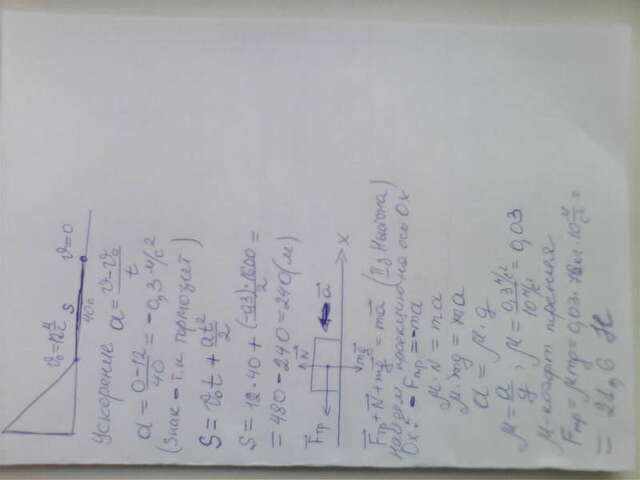 v₀=12 м/с
S
40с
v=0
Ускорение a = (v-v₀)/t
a = (0-12)/40 = -0,3 м/с²
(Знак – т.к. тормозит)
S = v₀t + at²/2
S = 12·40 + (-0,3)·1600/2 =
= 480 - 240 = 240 (м)
Fтр
N
mg
a
X
Fтр + N + mg = ma (II з Ньютона)
Найдем проекции на ось Ox
Ox: -Fтр = -ma
μ·N = ma
μ·mg = ma
a = μ·g
μ = a/g; μ = 0,3 м/с² / 10 м/с² = 0,03
μ - коэфт трения
Fтр = μmg = 0,03· ·10 =
= 21,6 Н